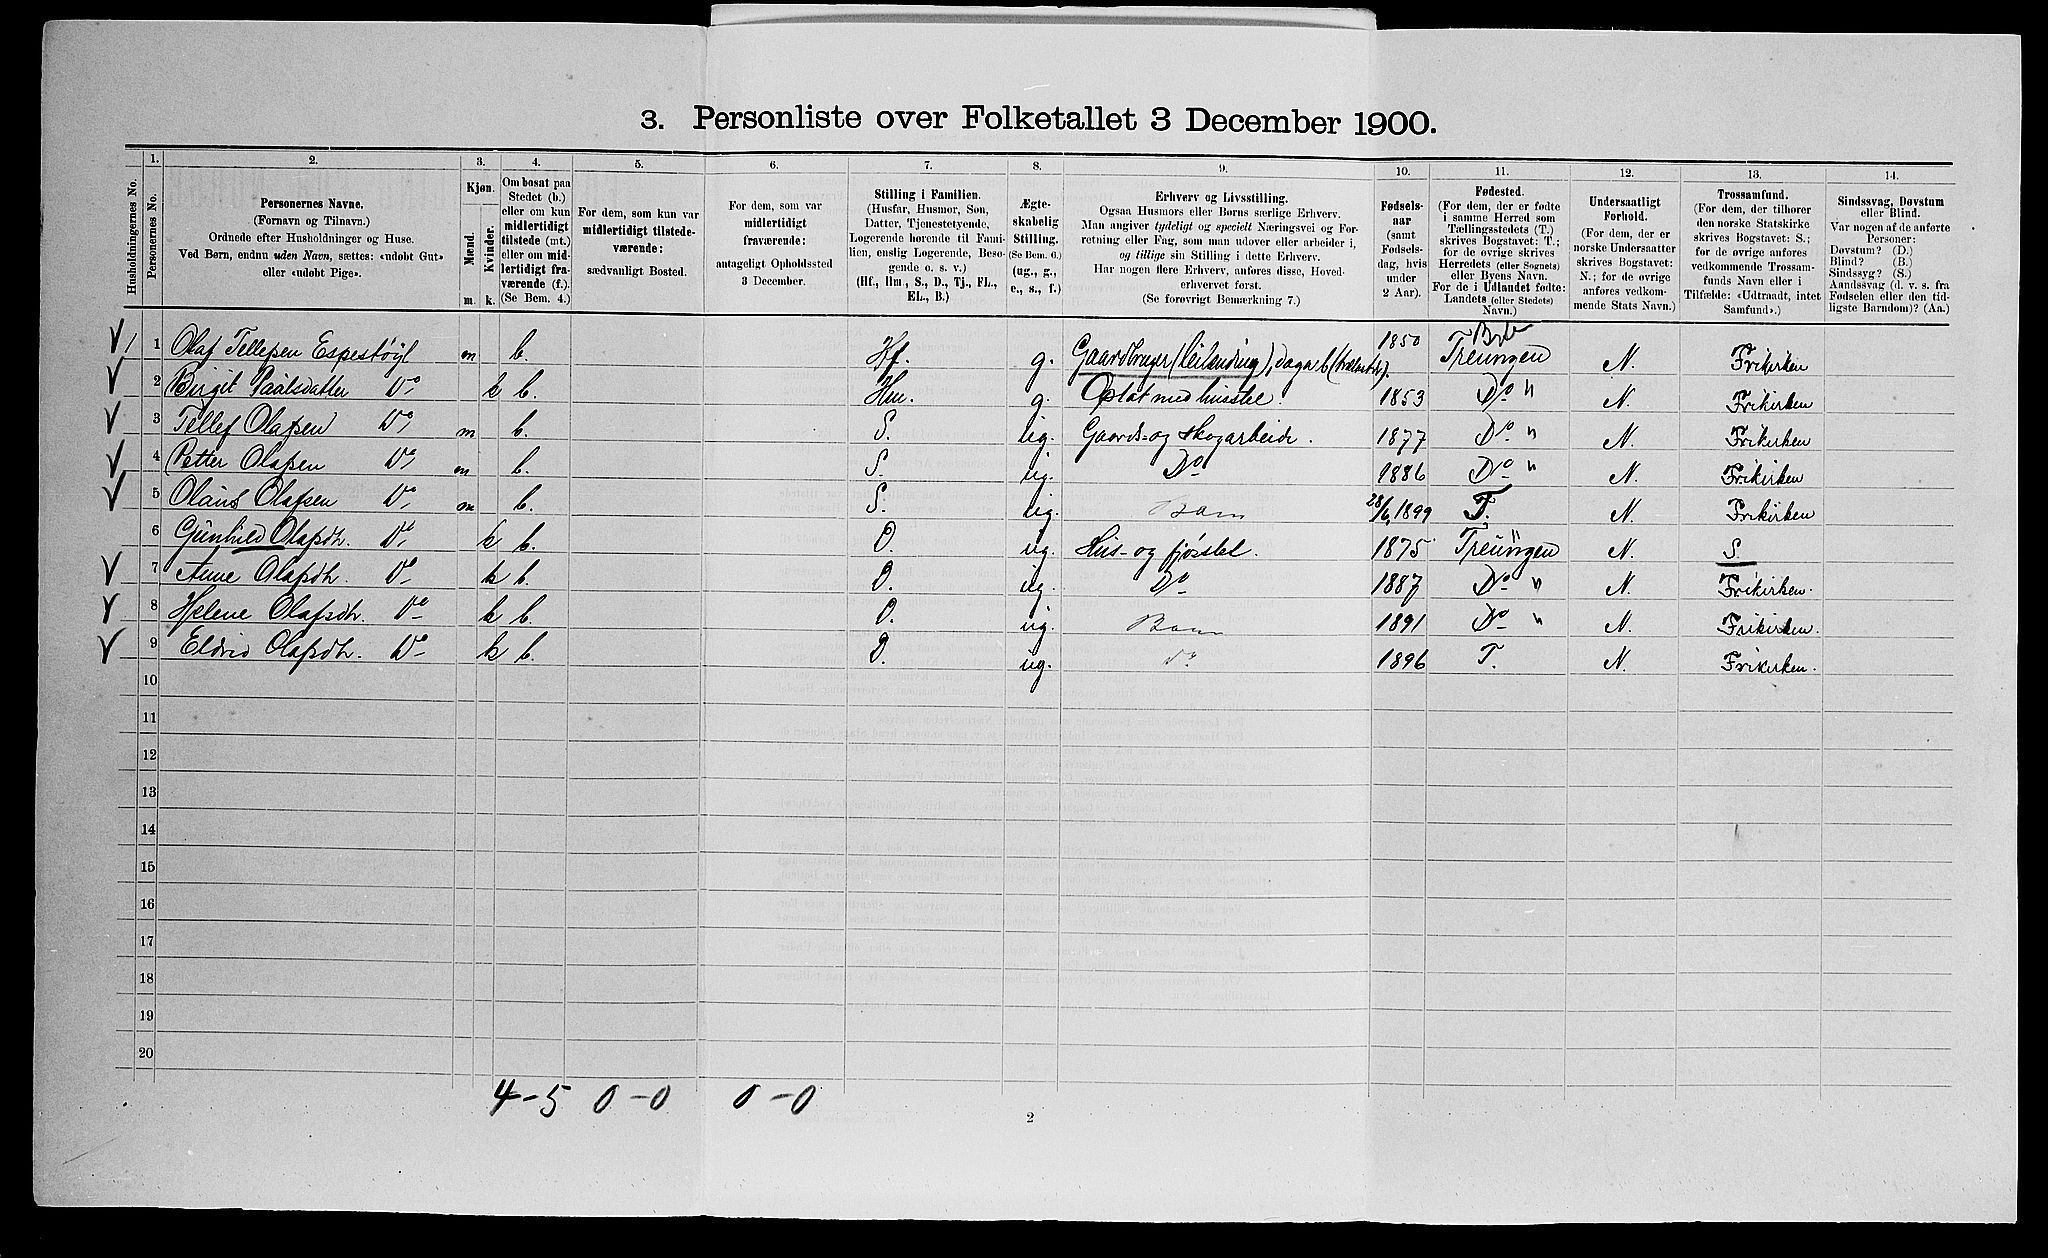 3. Personliste over Folketallet 3 December 1900.
Husholdningernes No.
1.
Personernes No.
2.
Personernes Navne.
(Fornavn og Tilnavn.)
Ordnede efter Husholdninger og Huse.
Ved Børn, endnu uden Navn, sættes: «udobt Gut»
eller «udobt Pige».
3.
Kjøn.
Mænd.
Kvinder.
m.
k.
4.
Om bosat paa
Stedet (b.)
eller om kun
midlertidigt
tilstede (mt.)
eller om mid-
lertidigt fra-
værende (f.).
(Se Bem. 4.)
5.
For dem, som kun var
midlertidigt tilstede-
værende:
sædvanligt Bosted.
6.
For dem, som var
midlertidigt
fraværende:
antageligt Opholdssted
3 December.
7.
Stilling i Familien.
(Husfar, Husmor, Søn,
Datter, Tjenestetyende,
Logerende hørende til Fami-
lien, enslig Logerende, Besø-
gende o. s. v.)
(Hf., Hm., S., D., Tj., FL.,
EL., B.)
8.
Ægte-
skabelig
Stilling.
(Se Bem. 6.)
(ug., g.,
e., s., f.)
9.
Erhverv og Livsstilling.
Ogsaa Husmors eller Børns særlige Erhverv.
Man angiver tydeligt og specielt Næringsvei og For-
retning eller Fag, som man udover eller arbeider i,
og tillige sin Stilling i dette Erhverv.
Har nogen flere Erhverv, anføres disse, Hoved-
erhvervet først.
(Se forøvrigt Bemærkning 7.)
10.
Fødsels-
aar
(samt
Fødsels-
dag, hvis
under
2 Aar).
11.
Fødested.
(For dem, der er fødte
i samme Herred som
Tællingsstedets (T.)
skrives Bogstavet: T.;
for de øvrige skrives
Herredets (eller Sognets)
eller Byens Navn.
For de i Udlandet fødte:
Landets (eller Stedets)
Navn.)
12.
Undersaatligt
Forhold.
(For dem, der er
norske Undersaatter
skrives Bogstavet:
N.; for de øvrige
anføres vedkom-
mende Stats Navn.)
13.
Trossamfund.
(For dem, der tilhører
den norske Statskirke
skrives Bogstavet: S.;
for de øvrige anføres
vedkommende Trossam-
funds Navn eller i
Tilfælde: «Udtraadt, intet
Samfund».)
14.
Sindssvag, Døvstum
eller Blind.
Var nogen af de anførte
Personer:
Døvstum? (D.)
Blind? (B.)
Sindssyg? (S.)
Aandssvag (d. v. s. fra
Fødselen eller den tid-
ligste Barndom)? (Aa.)
1 Olaf Tellefsen Espestøyl m b. Hf. g. Gaardbruger (leilending), 1850 Treungen N. Frikirken
2 Birgit Paalsdatter Do k b. Hm. g. Optat med husstel. 1853 Do " N. Frikirken
3 Tellef Olafsen Do m b. S. ug. Gaards- og skogarbeide. 1877 Do " N. Frikirken
4 Petter Olafsen Do m b. S. ug. Do 1886 Do " N. Frikirken
5 Olaus Olafsen Do m b. S. ug. Barn 28/6 1899 T. N. Frikirken
6 Gunhild Olafsdtr. Do k b. D. ug. Hus- og fjøsstel. 1875 Treungen N. S.
7 Anne Olafsdtr. Do k b. D. ug. Do 1887 Do " N. Frikirken.
8 Helene Olafsdtr. Do k b. D. ug. Barn 1891 Do " N. Frikirken.
9 Eldrid Olafsdtr. Do k b. D. ug. Do 1896 T. N. Frikirken.
10
11
12
13
14
15
16
17
18
19
20
4-5 0-0 0-0
2